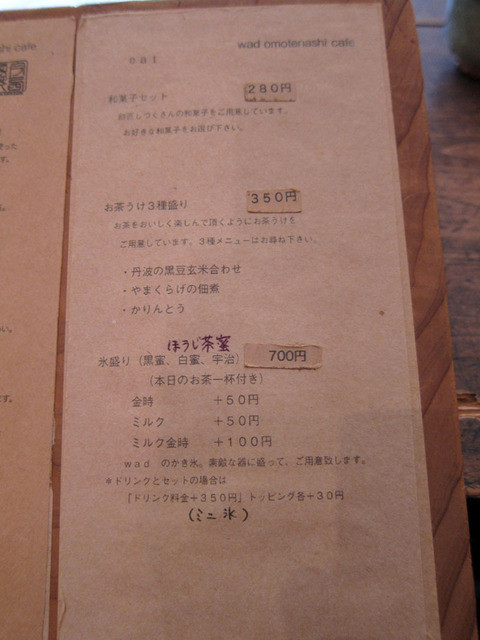 shi cafe
wad omotenashi cafe
eat
和菓子セット 280円
お好きな和菓子をお選び下さい。
お茶うけ3種盛り 350円
お茶をおいしく楽しんで頂くようにお茶うけを
ご用意しています。3種メニューはお尋ね下さい。
・丹波の黒豆玄米合わせ
・やまくらげの佃煮
・かりんとう
ほうじ茶蜜
氷盛り（黒蜜、白蜜、宇治） 700円
（本日のお茶一杯付き）
金時 ＋50円
ミルク ＋50円
ミルク金時 ＋100円
wad のかき氷。素敵な器に盛って、ご用意致します。
＊ドリンクとセットの場合は
「ドリンク料金＋350円」トッピング各＋30円
(ミニ氷)